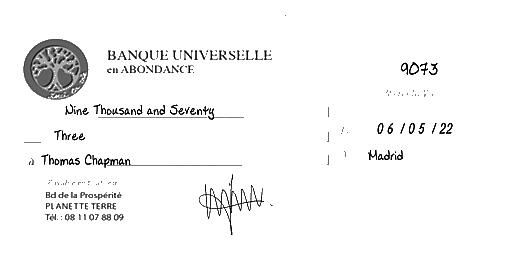 BANQUE UNIVERSELLE
en ABONDANCE
9073
Nine Thousand and Seventy
Three
06/05/22
à Thomas Chapman
Madrid
Bd de la Prospérité
PLANETTE TERRE
Tél. : 08 11 07 88 09